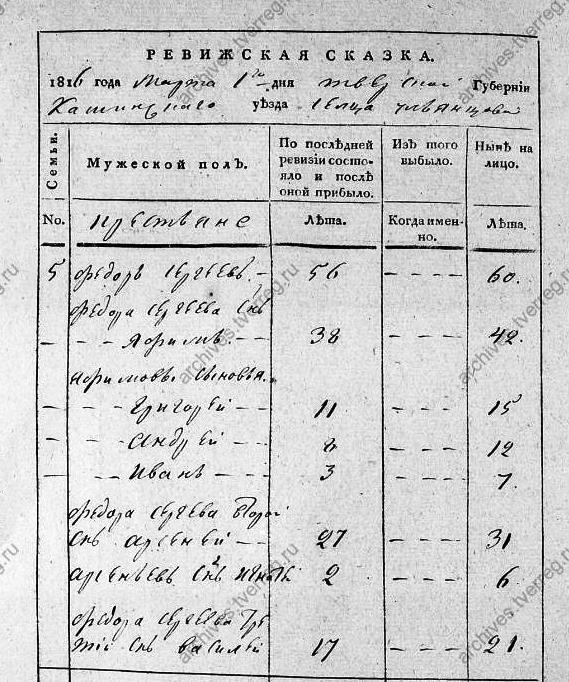 РЕВИЖСКАЯ СКАЗКА.
1816 года Марта 1го дня Тверской Губернiи
Кашинскаго уѣзда сельца Ульянцова
Семьи. Мужеской полъ. По послѣдней ревизiи состояло и послѣ оной прибыло. Изъ того выбыло. Нынѣ на лицо.
No. крестьяне Лѣта. Когда именно. Лѣта.
5 Федоръ Сергеевъ 56 60.
Федора Сергеева Снъ
Яфимъ 38 42.
Яфимовы Сыновья
Григорей 11 15
Андрей 8 12
Иванъ 3 7.
Федора Сергеева второй
Снъ Арсеней 27 31
Арсеньевъ Снъ 2 6
Федора Сергеева тре
тiй Снъ Василей 17 21.
archives.tverreg.ru